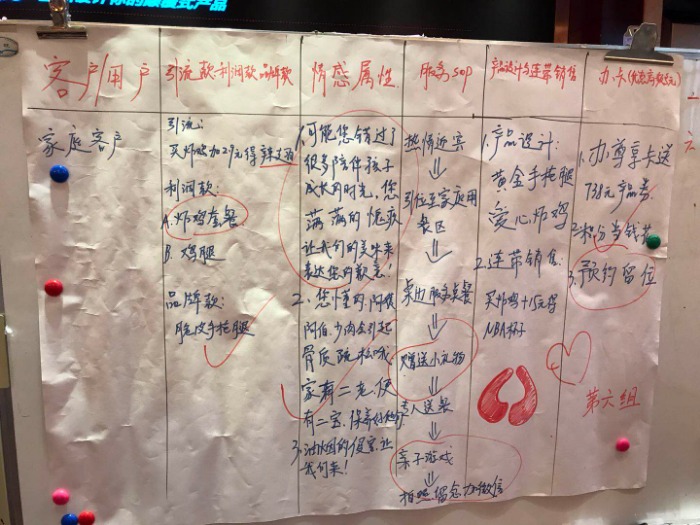 设计你的颠覆式产品
客户/用户
引流款·利润款 品牌款
情感属性
服务sop
产品设计与连带销售
办.卡
家庭客户
引流：
买炸鸡加29元得
利润款：
A. 炸鸡套餐
B. 鸡腿
品牌款：
脆皮手枪腿
1.可能您错过了
很多陪伴孩子
成长的时光，您
满满的愧疚
让我们的美味来
表达您的歉意！
2、您懂的，阿爸
阿伯，少肉会引起
骨质疏松哦
家有二老，便
有二宝，保养好他们
3、油烟的 让
我们来！
热情迎宾
引位至家庭用
餐区
桌边服务点餐
赠送小礼物
专人送餐
亲子游戏
拍照留念加微信
1.产品设计：
黄金手枪腿
爱心炸鸡
2.连带销售：
买炸鸡+15元得
NBA杯子
1.办尊享卡送
738元产品券
2.积分当钱花
3.预约留位
第六组